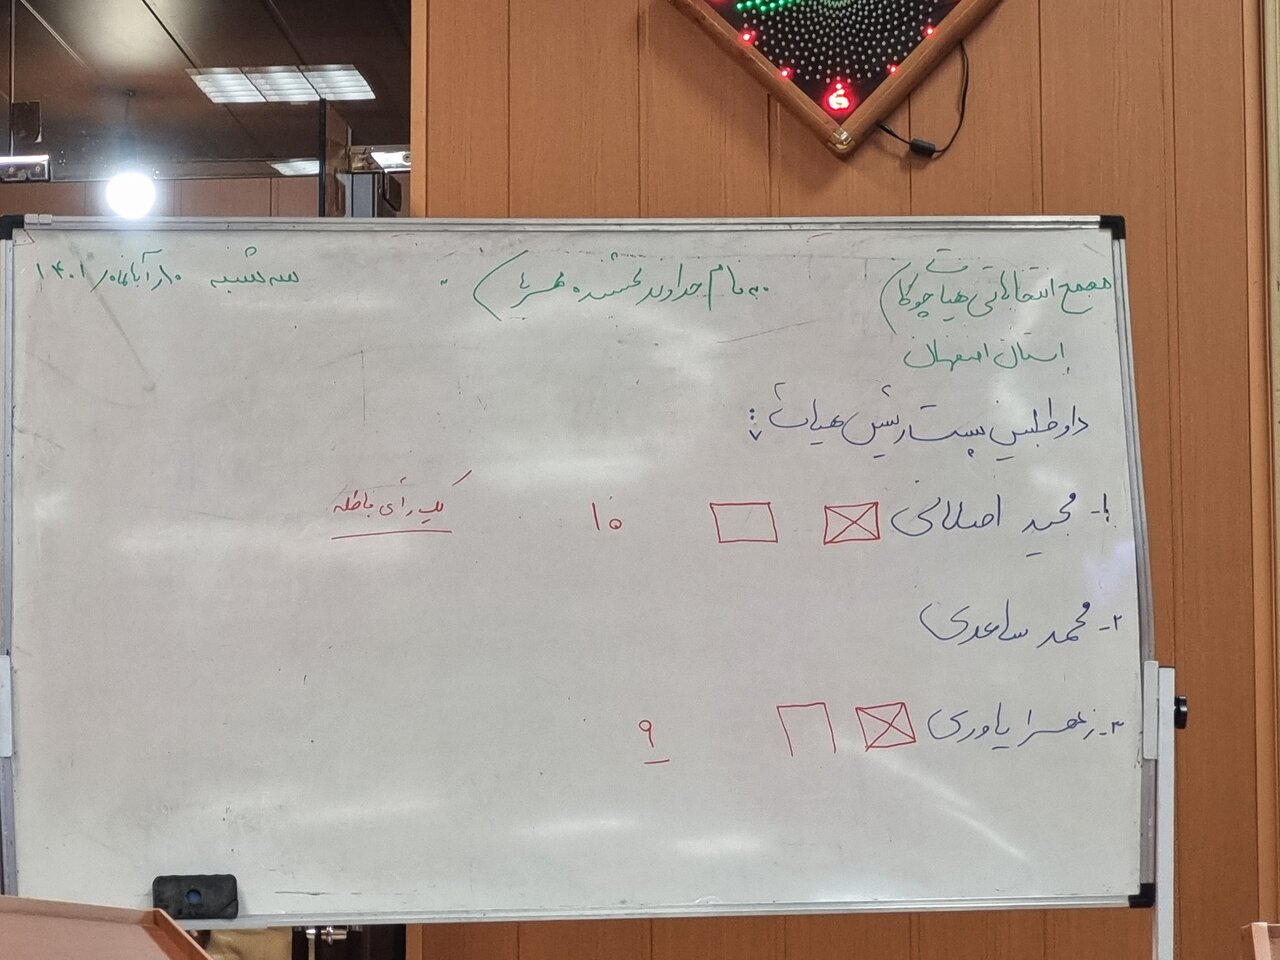 به نام خداوند بخشنده مهربان
مجمع انتخاباتی هیات چوگان
استان اصفهان
سه شنبه ۱۰/آبانماه/۱۴۰۱
داوطلبین پست رئیس هیات:
۱- مجید اصلانی ۱۰ یک رأی باطله
۲- محمد ساعدی
۳- زهرا یاوری ۹